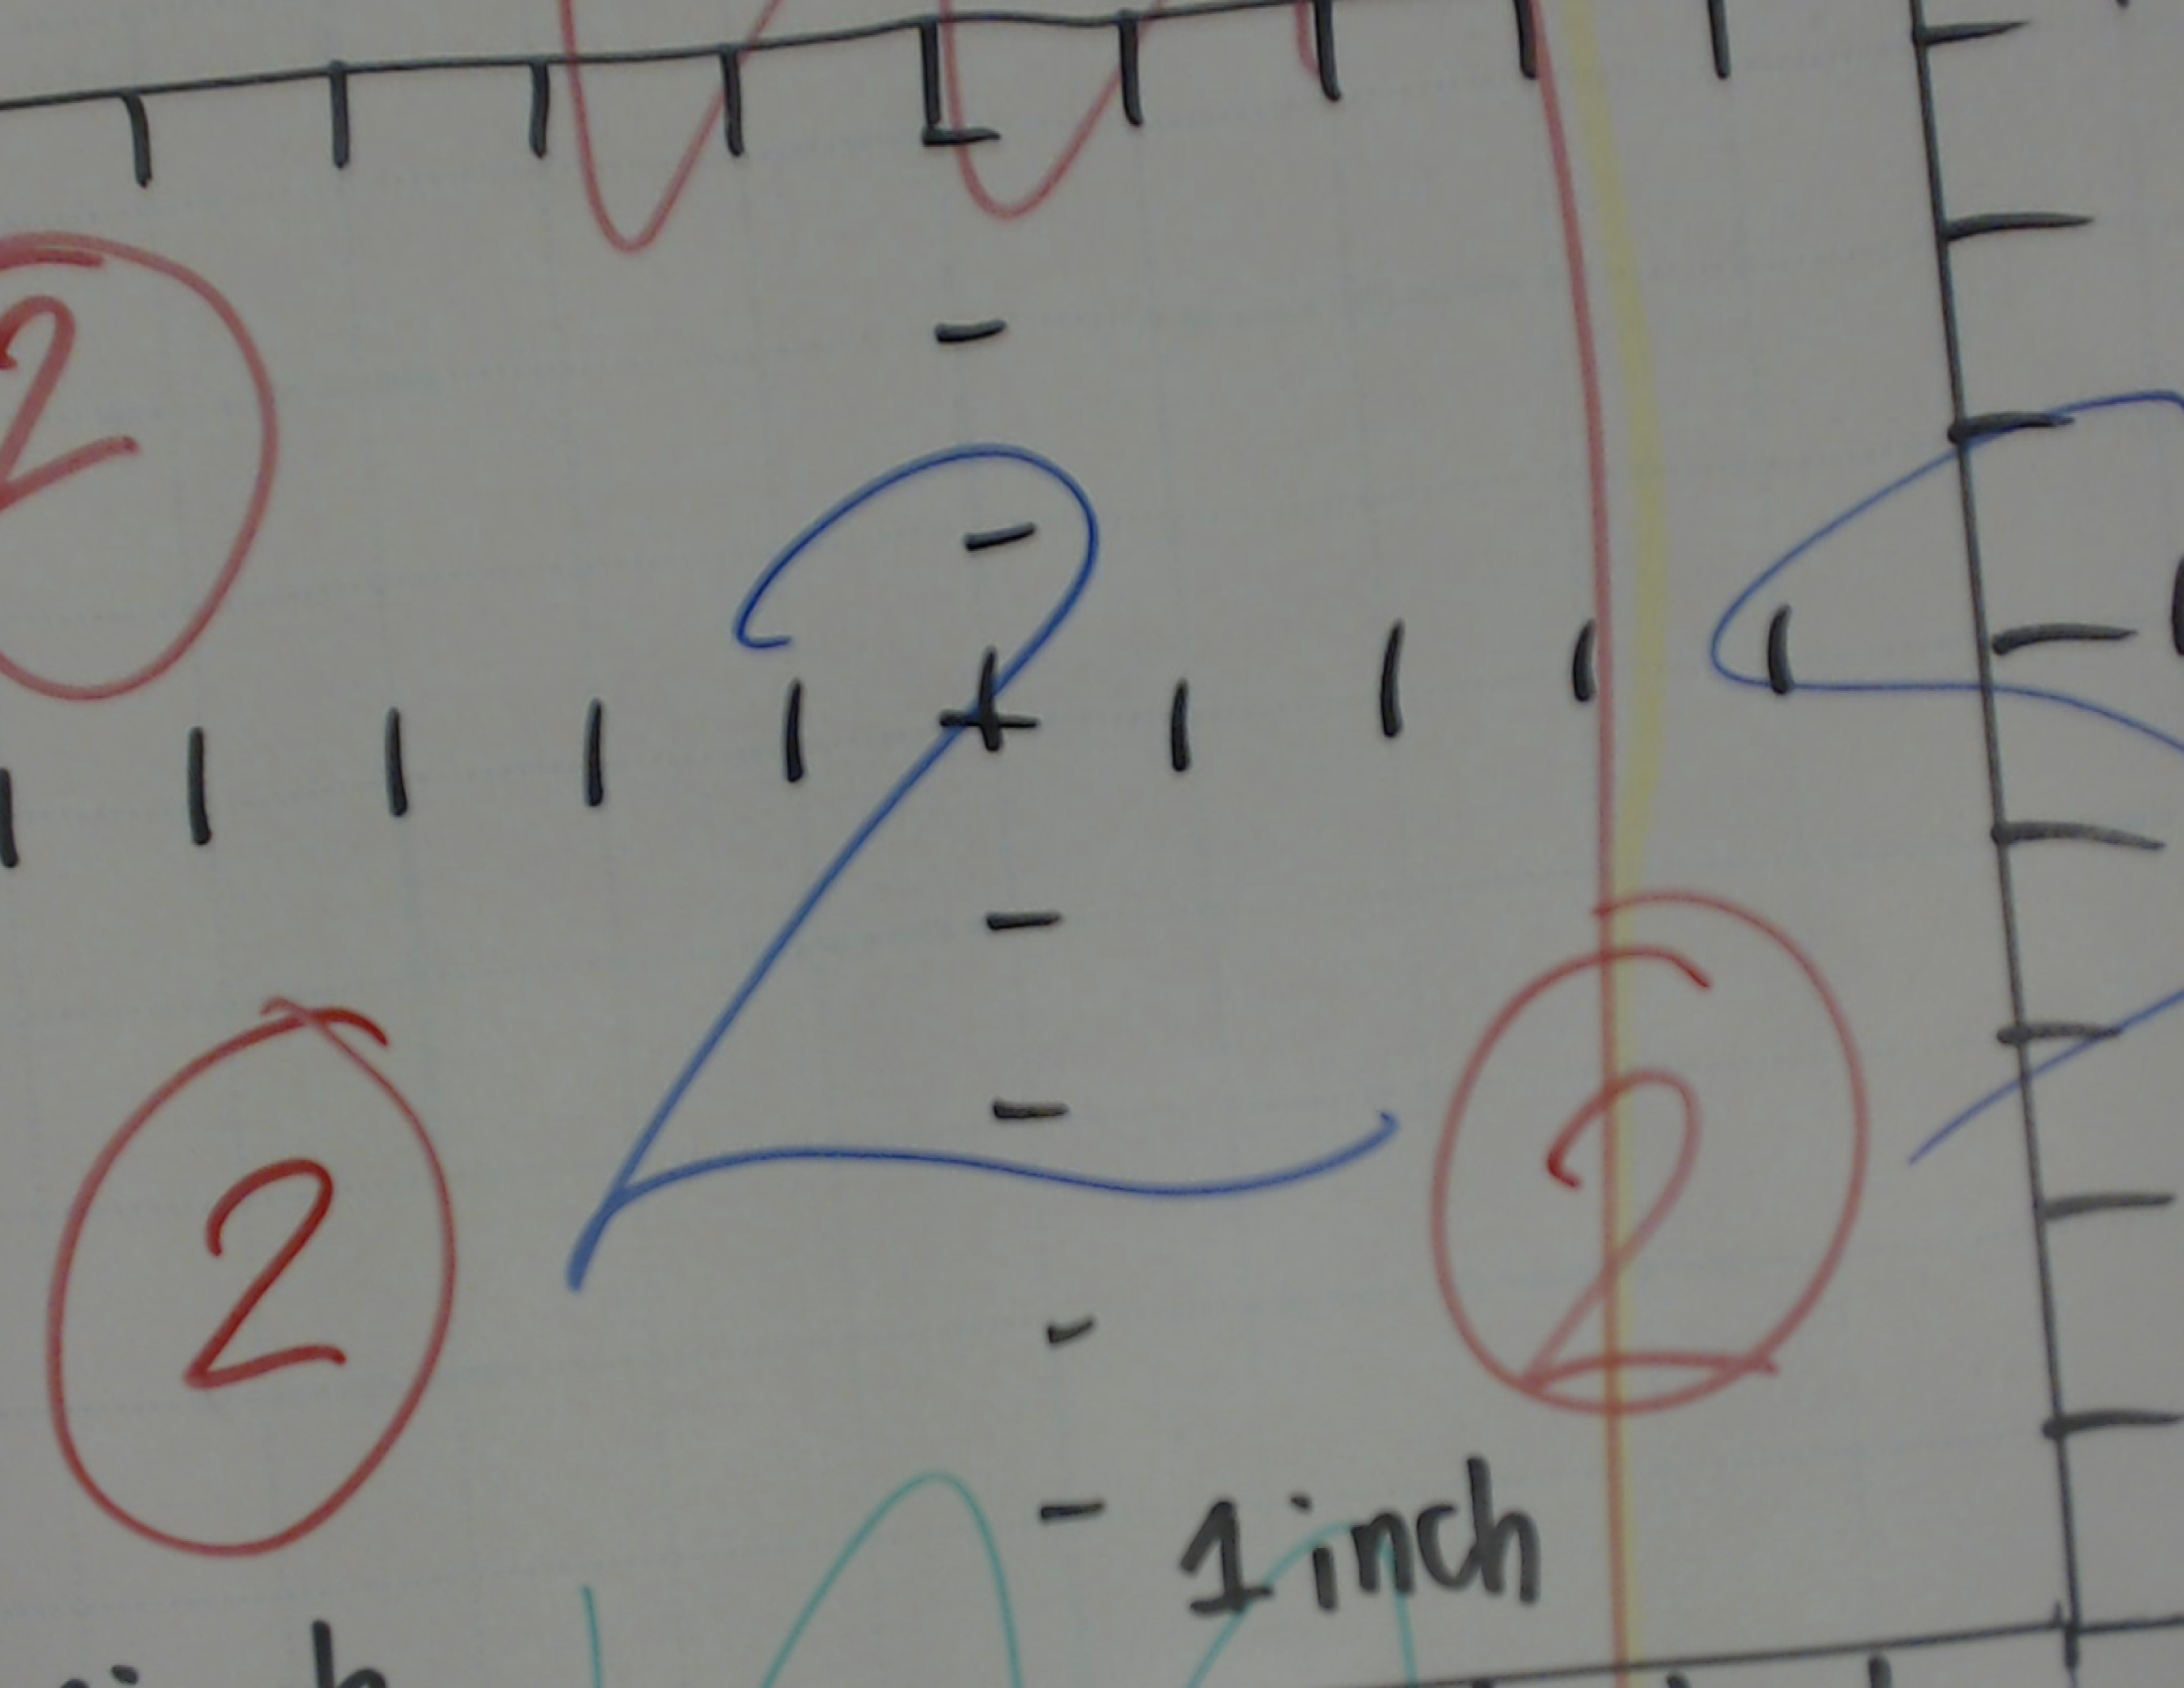 2
2
2
2
1 inch